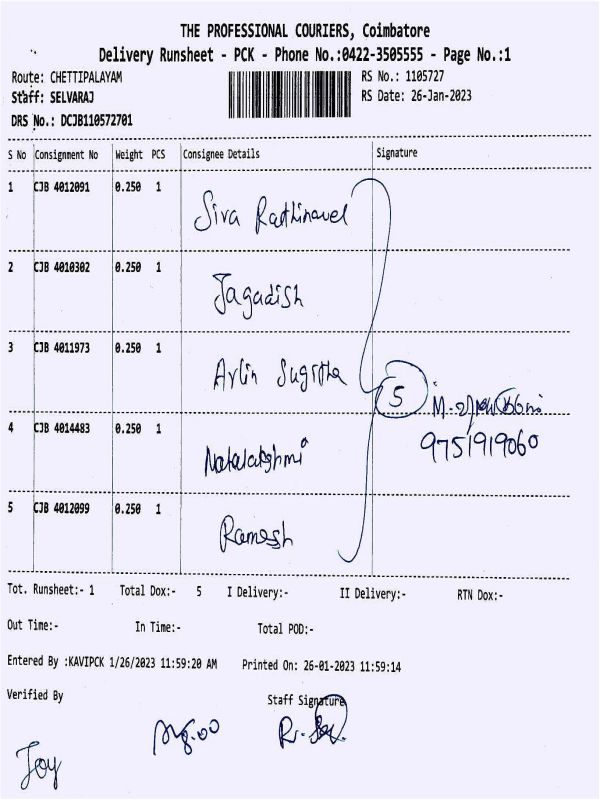 THE PROFESSIONAL COURIERS, Coimbatore
Delivery Runsheet - PCK - Phone No.:0422-3505555 - Page No.:1
Route: CHETTIPALAYAM RS No.: 1105727
Staff: SELVARAJ RS Date: 26-Jan-2023
DRS No.: DCJB110572701
S No Consignment No Weight PCS Consignee Details Signature
1 CJB 4012091 0.250 1 Siva Rathinavel
2 CJB 4010302 0.250 1 Jagadish
3 CJB 4011973 0.250 1 Arlin Sugitha
5
4 CJB 4014483 0.250 1
9751919060
5 CJB 4012099 0.250 1 Ramesh
Tot. Runsheet:- 1 Total Dox:- 5 I Delivery:- II Delivery:- RTN Dox:-
Out Time:- In Time:- Total POD:-
Entered By :KAVIPCK 1/26/2023 11:59:20 AM Printed On: 26-01-2023 11:59:14
Verified By Staff Signature
Joy